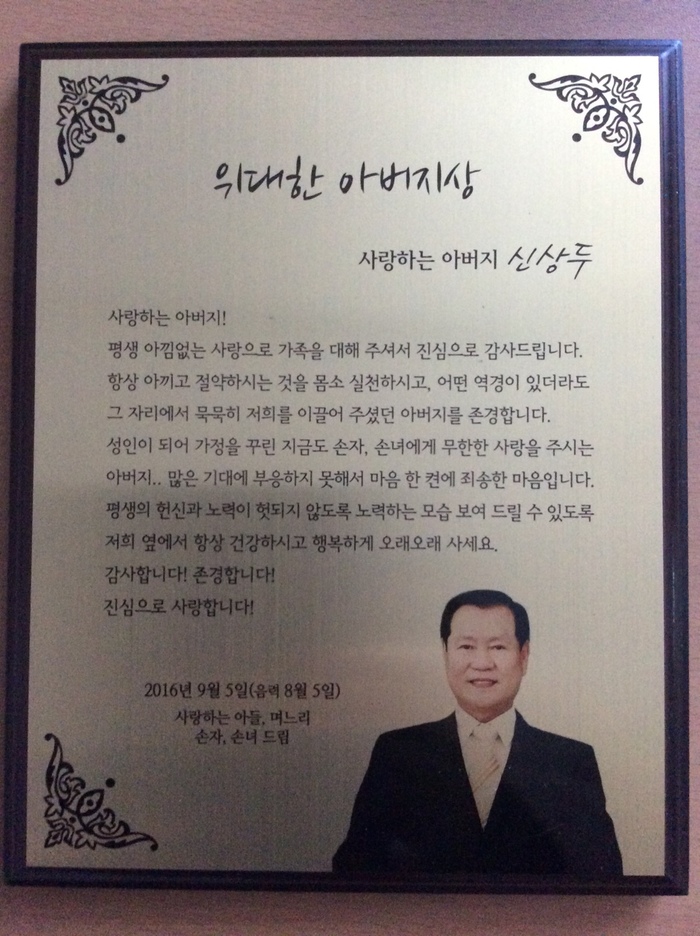 위대한 아버지상
사랑하는 아버지 신상두
사랑하는 아버지!
평생 아낌없는 사랑으로 가족을 대해 주셔서 진심으로 감사드립니다.
항상 아끼고 절약하시는 것을 몸소 실천하시고, 어떤 역경이 있더라도
그 자리에서 묵묵히 저희를 이끌어 주셨던 아버지를 존경합니다.
성인이 되어 가정을 꾸린 지금도 손자, 손녀에게 무한한 사랑을 주시는
아버지.. 많은 기대에 부응하지 못해서 마음 한 켠에 죄송한 마음입니다.
평생의 헌신과 노력이 헛되지 않도록 노력하는 모습 보여 드릴 수 있도록
저희 옆에서 항상 건강하시고 행복하게 오래오래 사세요.
감사합니다! 존경합니다!
진심으로 사랑합니다!
2016년 9월 5일(음력 8월 5일)
사랑하는 아들, 며느리
손자, 손녀 드림